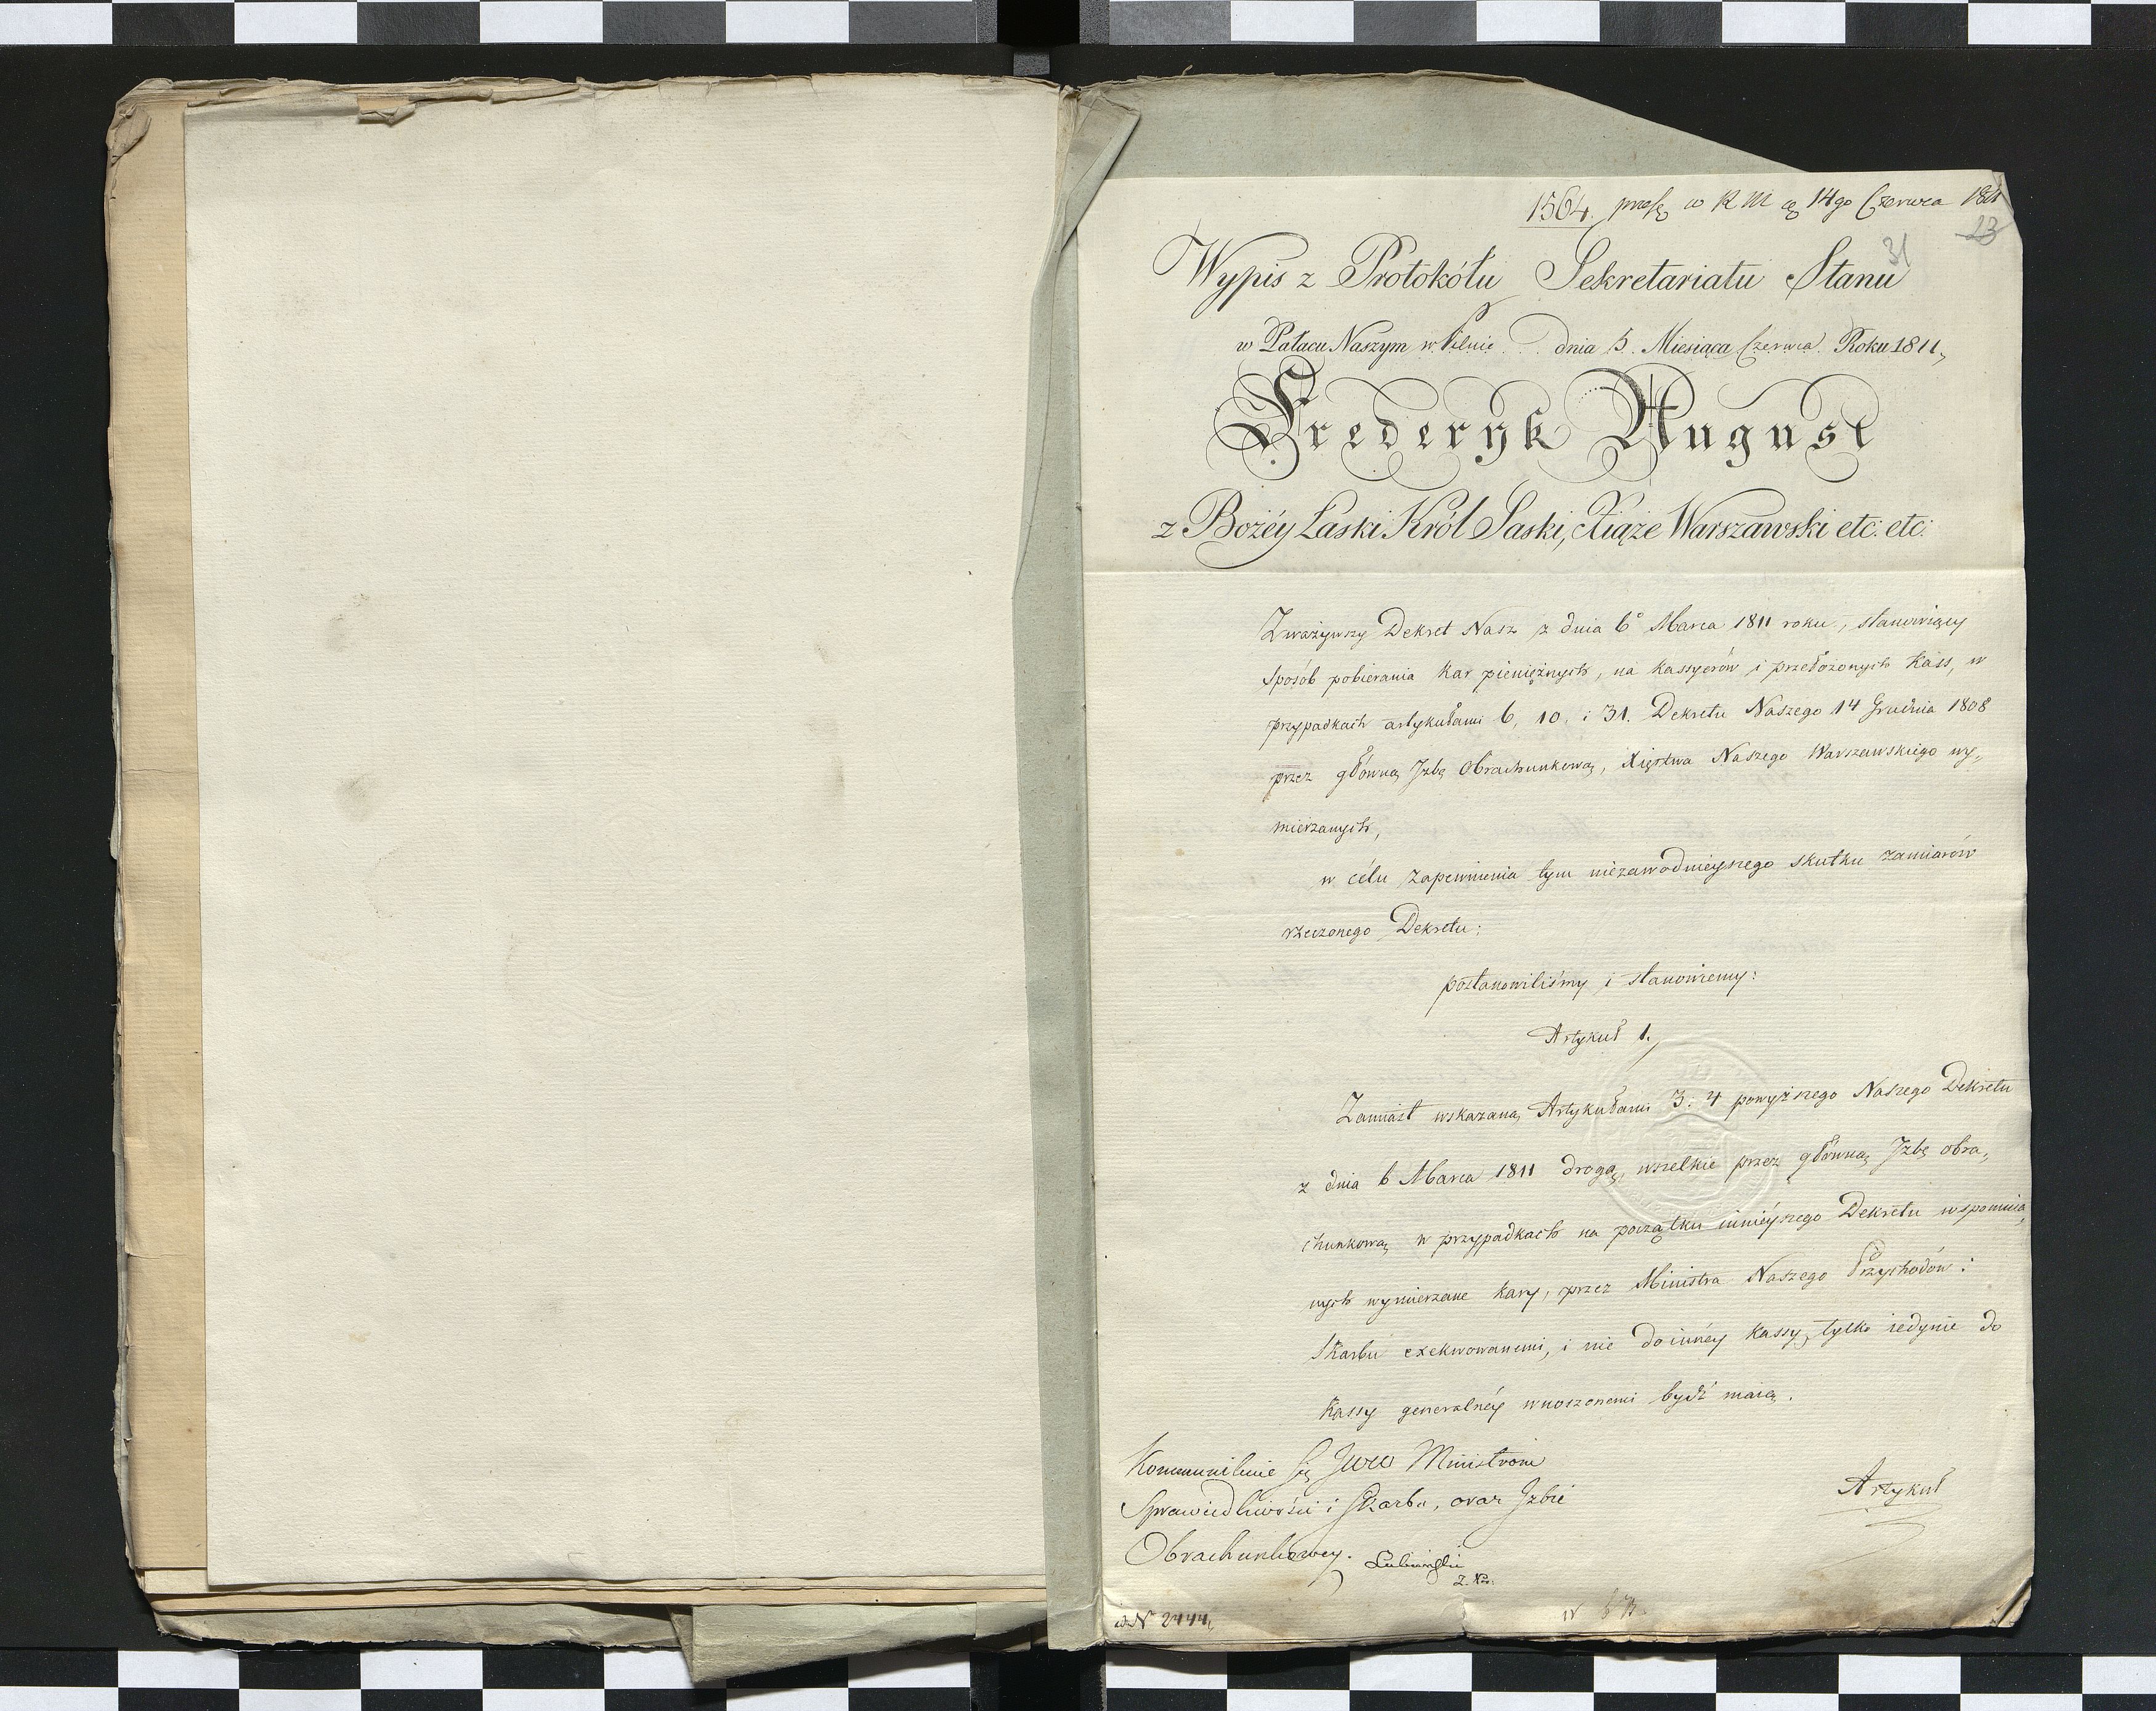 1564. w R M 14go Czerwca 1811
23
31
Wypis z Protokółu Sekretariatu Stanu
w Pałacu Naszym w Pilnie dnia 5. Miesiąca Czerwca Roku 1811,
Frederyk August
z Bożéy Łaski Król Saski, Xiąże Warszawski etc: etc:
Zważywszy Dekret Nasz z dnia 6º Marca 1811 roku, stanowiący
sposób pobierania kar pieniężnych, na kassyerów i przełożonych kass, w
przypadkach artykułami 6, 10, i 31. Dekretu Naszego 14 Grudnia 1808
przez główną Jzbę Obrachunkową, Xięstwa Naszego Warszawskiego wy„
mierzanych,
w célu zapewnienia tym niezawodnieyszego skutku zamiarów
rzeczonego Dekretu;
postanowiliśmy i stanowiemy:
Artykuł 1.
Zamiast wskazaną Artykułami 3. 4 powyższego Naszego Dekretu
z dnia 6 Marca 1811 drogą, wszelkie przez główną Jzbę obra„
chunkową w przypadkach na początku ninieyszego Dekretu wspomnia„
nych wymierzane kary, przez Ministra Naszego Przychodów i
Skarbu exekwowanemi, i nie do innéy kassy, tylko iedynie do
Kassy generalnéy wnoszonemi bydź maią.
Kommunikuie się JWW Ministrom
Sprawiedliwości i Skarbu, oraz Jzbie
Obrachunkowey. Lubieński
Artykuł
N 2444,